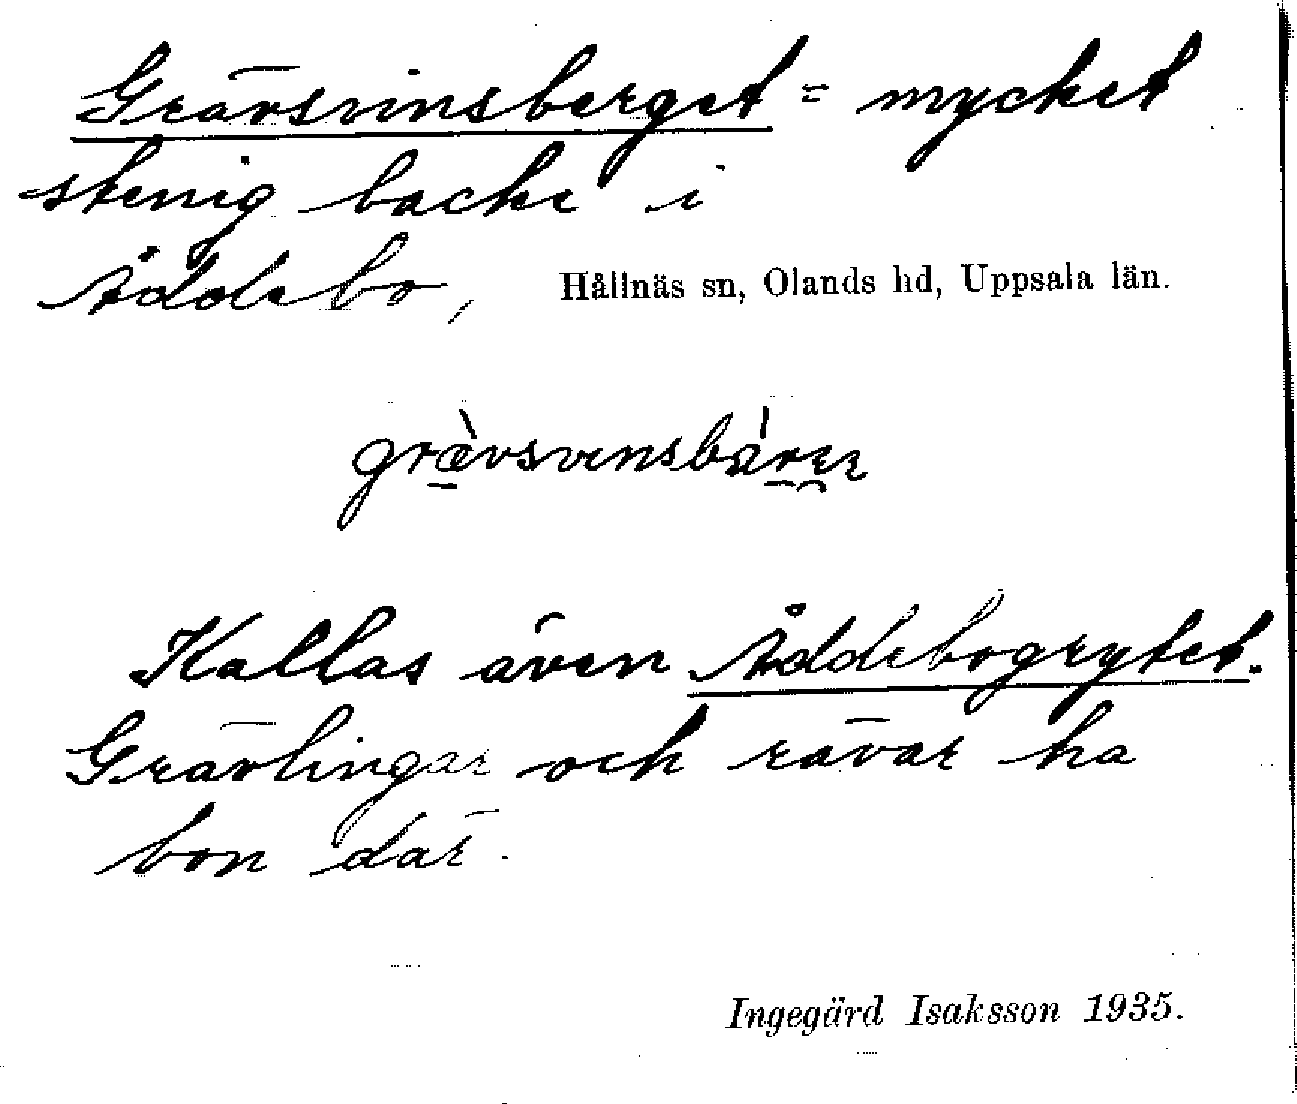 Grävsvinsberget = mycket
stenig backe i
Åddebo, Hållnäs sn, Olands hd, Uppsala län.
græ̀vsvinsbàrer
Kallas även Åddebogrytet.
Grävlingar och rävar ha
bon där.
Ingegärd Isaksson 1935.